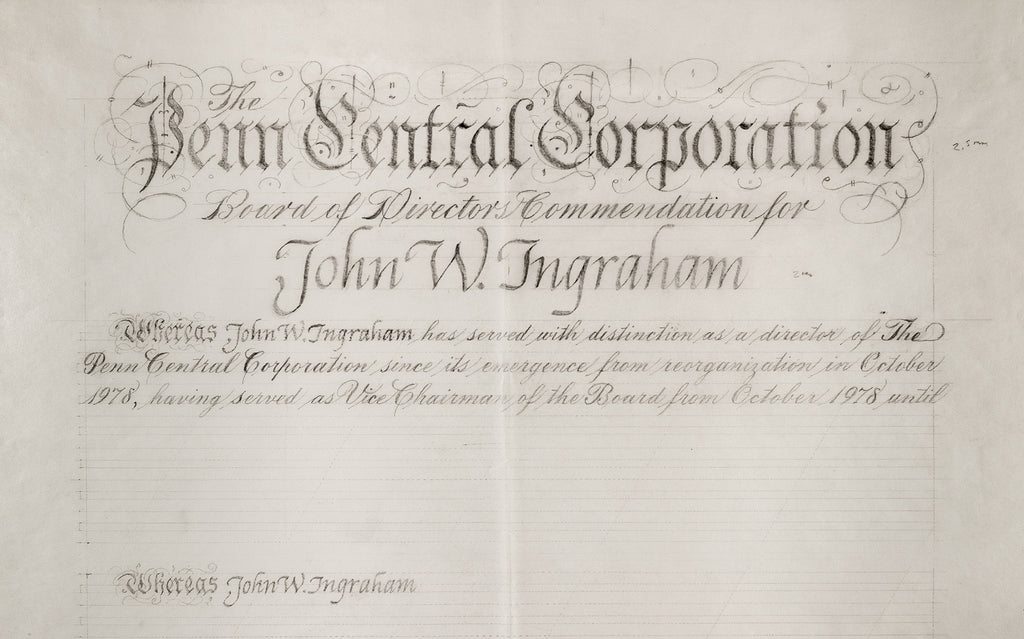 The
Penn Central Corporation
2.5mm
Board of Directors Commendation for
John W. Ingraham
2mm
Whereas John W. Ingraham has served with distinction as a director of The
Penn Central Corporation since its emergence from reorganization in October
1978, having served as Vice Chairman of the Board from October 1978 until
Whereas John W. Ingraham